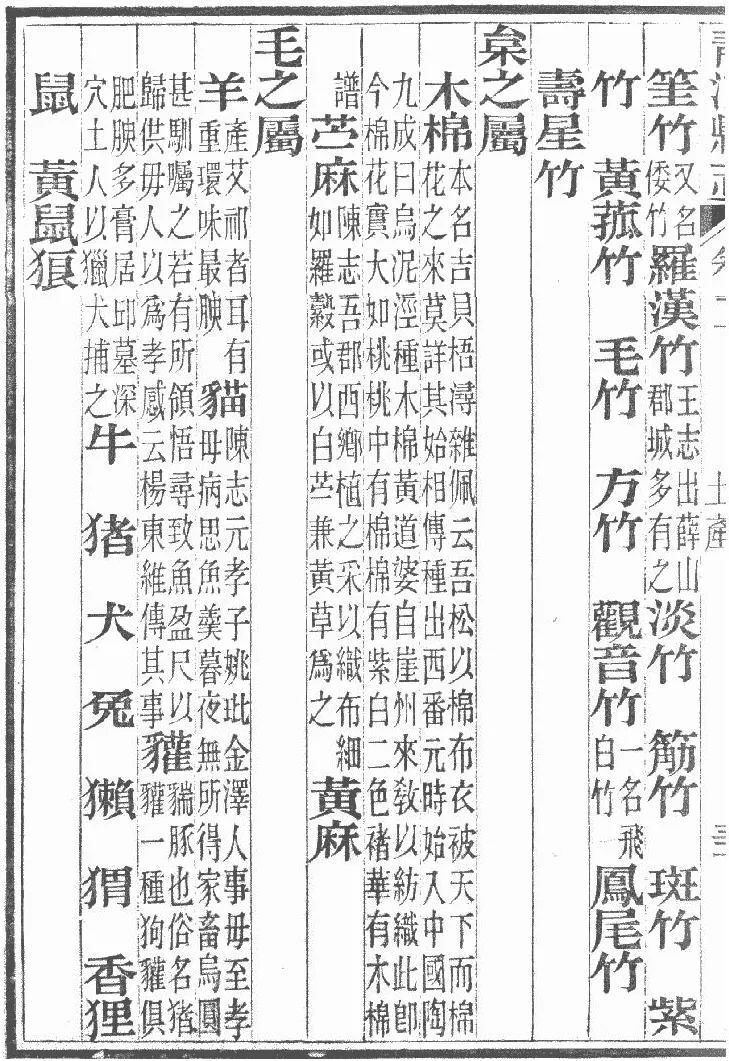 土產
筀竹又名倭竹羅漢竹王志出薛山郡城多有之淡竹 筋竹 斑竹 紫
竹 黃菰竹 毛竹 方竹 觀音竹一名飛白竹鳳尾竹
壽星竹
枲之屬
木棉本名吉貝梧潯雜佩云吾松以棉布衣被天下而棉花之來莫詳其始相傳種出西番元時始入中國陶
九成曰烏泥涇種木棉黃道婆白崖州來敎以紡織此卽今棉花實大如桃桃中有棉棉有紫白二色褚華有木棉
譜苧麻陳志吾郡西鄉植之采以織布細如羅縠或以白苧兼黃草爲之黃麻
毛之屬
羊產艾祁者耳有重環味最腴貓陳志元孝子姚玭金澤人事母至孝母病思魚羹暮夜無所得家畜烏圓
甚馴囑之若有所領悟尋致魚盈尺以歸供母人以爲孝感云楊東維傳其事貛貒豚也俗名猪貛一種狗貛俱
肥腴多膏居邱墓深穴土人以獵犬捕之牛 猪 犬 兔 獺 猬 香狸
鼠 黃鼠狼